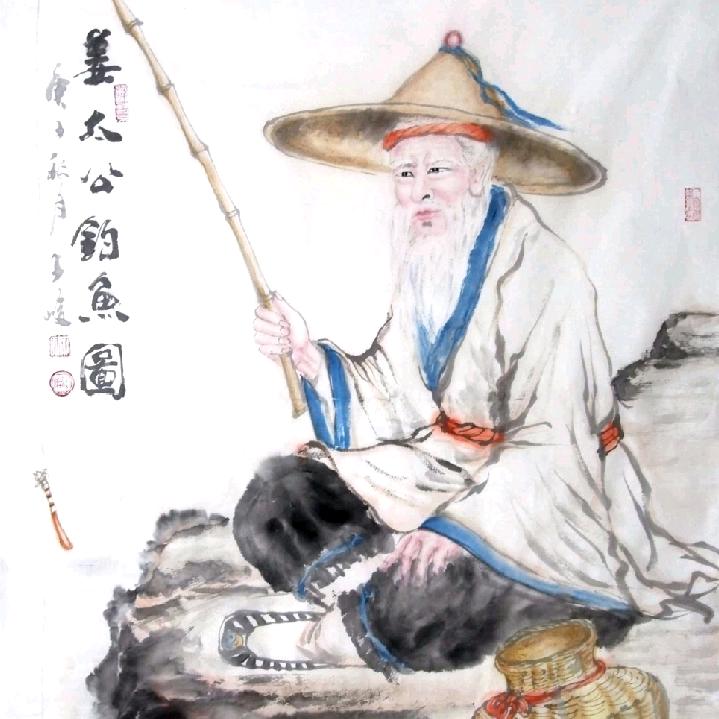 姜太公釣魚圖
庚子秋月王峻